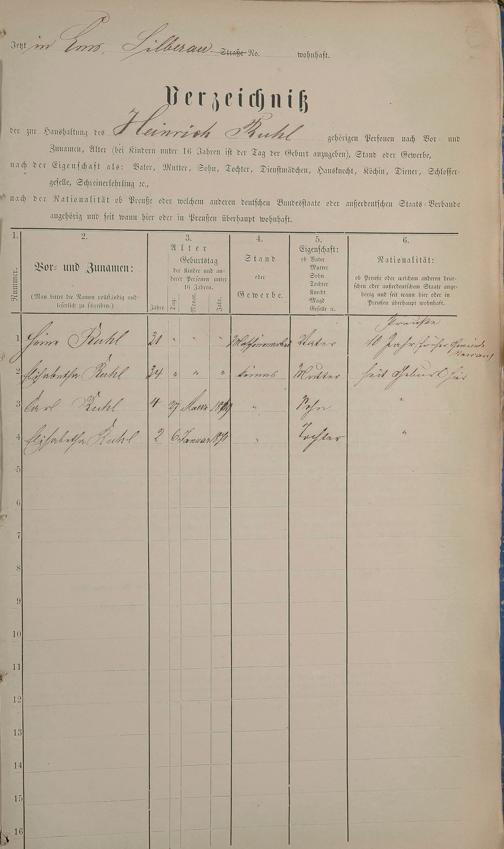 Jetzt in Ems. Silberau Straße No. wohnhaft.
Verzeichniß
der zur Haushaltung des Heinrich Ruhl gehörigen Personen nach Vor- und
Zunamen, Alter (bei Kindern unter 16 Jahren ist der Tag der Geburt anzugeben), Stand oder Gewerbe,
nach der Eigenschaft als: Vater, Mutter, Sohn, Tochter, Dienstmädchen, Hausknecht, Köchin, Diener, Schlosser-
geselle, Schreinerlehrling ꝛc.,
nach der Nationalität ob Preuße oder welchem anderen deutschen Bundesstaate oder außerdeutschen Staats-Verbande
angehörig und seit wann hier oder in Preußen überhaupt wohnhaft.
1. 2. 3. 4. 5. 6.
Nummer.
Vor- und Zunamen:
(Man bittet die Namen vollständig und leserlich zu schreiben.)
Alter
Geburtstag
der Kinder und anderer Personen unter 16 Jahren.
Jahre Tag. Monat. Jahr.
Stand
oder
Gewerbe.
Eigenschaft:
ob Vater
Mutter
Sohn
Tochter
Knecht
Magd
Geselle ꝛc.
Nationalität:
ob Preuße oder welchem anderen deutschen oder außerdeutschen Staate angehörig und seit wann hier oder in Preußen überhaupt wohnhaft.
Preuße
1 Ruhl " " " Vater 10 Jahr
2 Elisabetha Ruhl 34 " " " keines Mutter seit Geburt hier
3 Carl Ruhl 4 27 " Sohn "
4 Elisabetha Ruhl 2 6 Januar " Tochter "
5
6
7
8
9
10
11
12
13
14
15
16